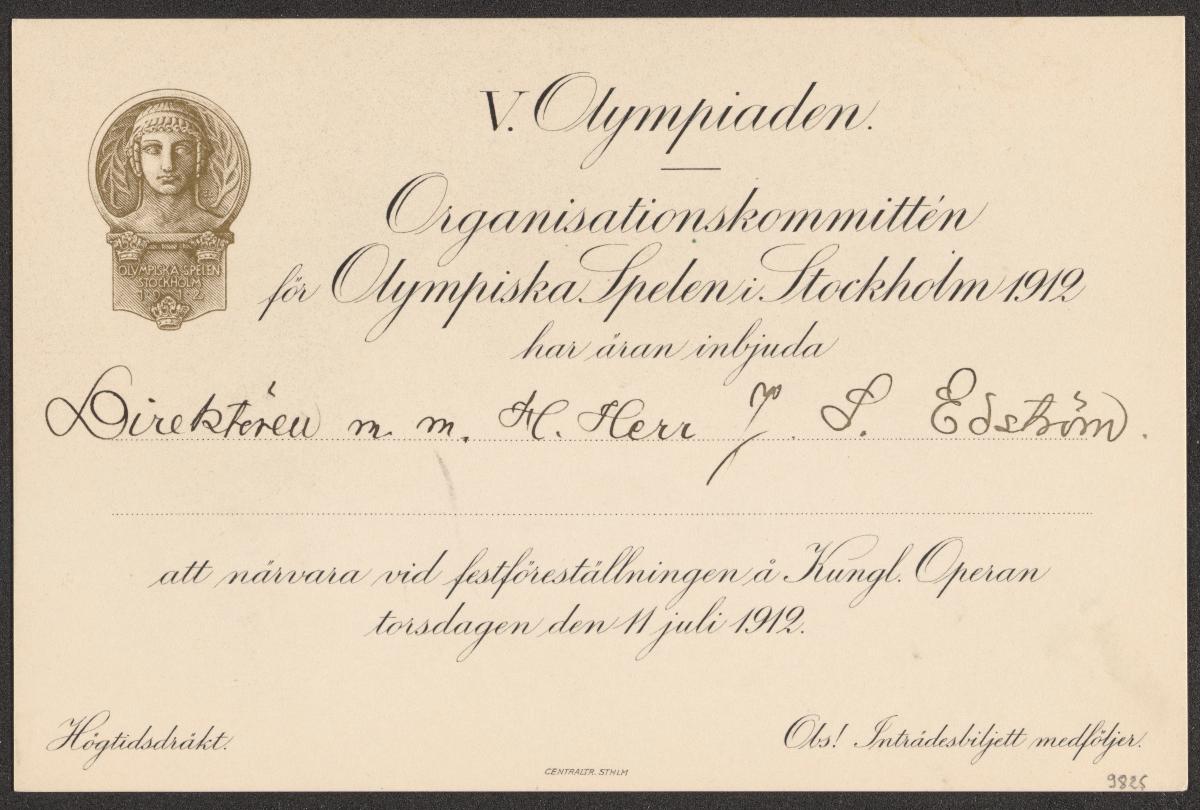 V. Olympiaden.
OLYMPISKA SPELEN
STOCKHOLM
1912
Organisationskommittén
för Olympiska Spelen i Stockholm 1912
har äran inbjuda
Direktören m. m. H. Herr J. S. Edström.
att närvara vid festföreställningen å Kungl. Operan
torsdagen den 11 juli 1912.
Högtidsdräkt.
Obs! Inträdesbiljett medföljer.
CENTRALTR. STHLM
9825